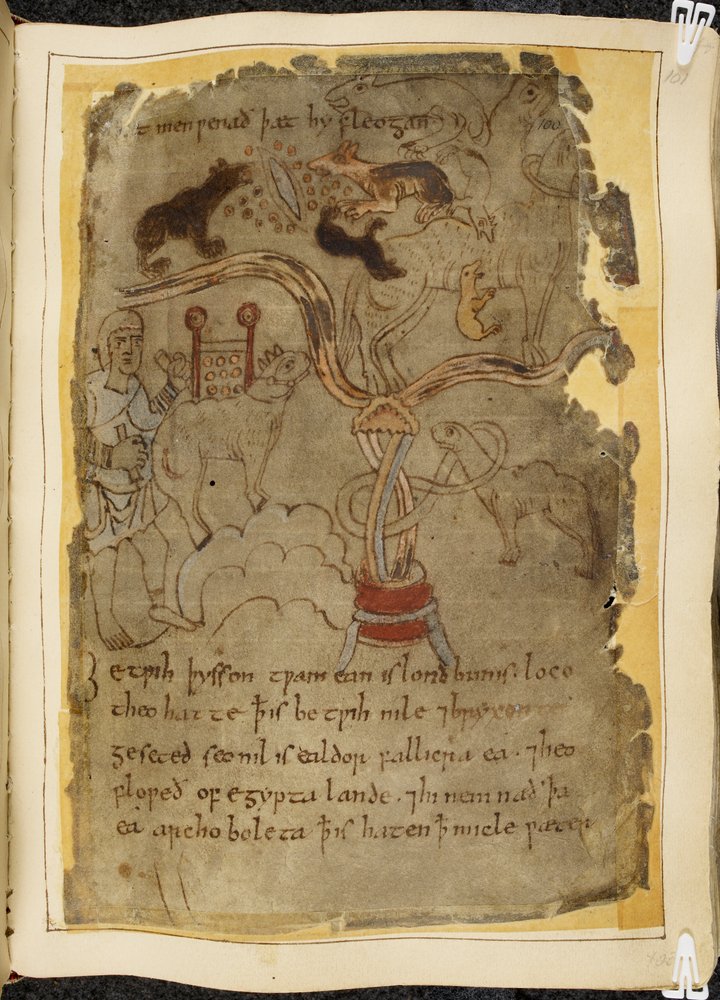 101
t men wenað þæt hy fleogan
100
Betwih þysson twam ean is londbunis · loco
theo hatte þ̄ is betwih nile ⁊ brixonte
geseted seo nil is ealdor fallicra ea · ⁊ heo
floweð of egypta lande · ⁊ hi nemnað þa
ea archoboleta þ̄ is haten þ̄ micle wæter